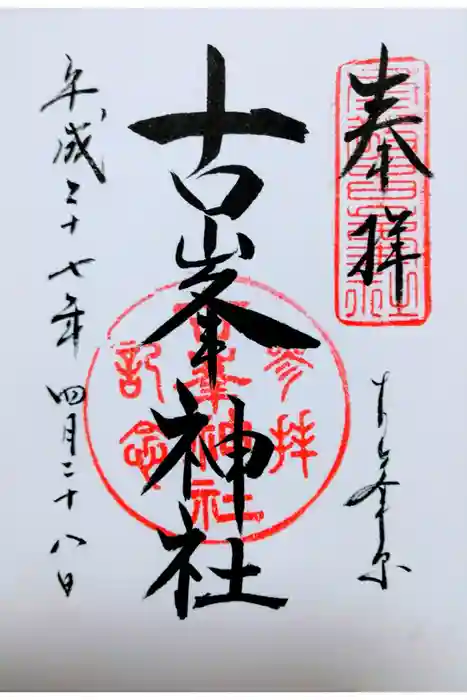 奉拝
於古峯原
古峯神社
平成二十七年四月二十八日
参拝
古峯神社
記念